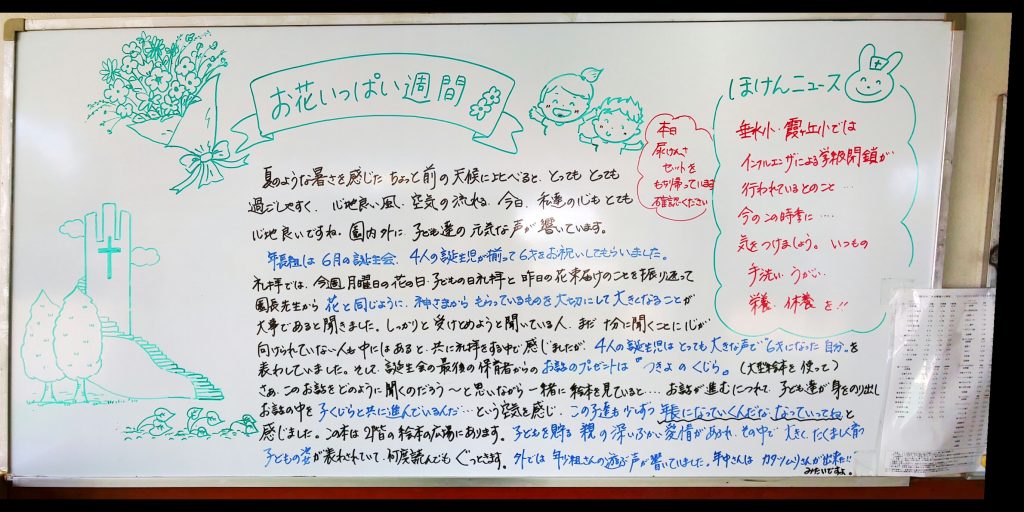 お花いっぱい週間
夏のような暑さを感じた ちょっと前の天候に比べると、とっても とっても
過ごしやすく、心地良い風、空気の流れる、今日、私達の心も とても
心地良いですね。園内外に 子ども達の 元気な声が 響いています。
年長組は 6月の誕生会、4人の誕生児が揃って 6才をお祝いしてもらいました。
礼拝では、今週月曜日の 花の日・子どもの日礼拝と 昨日の 花束届けのことを 振り返って
園長先生から 花と同じように、神さまから もらっているものを 大切にして 大きくなることが
大事であると 聞きました。しっかりと 受けとめようと 聞いている人、まだ 十分に聞くことに 心が
向けられていない人も 中にはあると、共に礼拝をする中で 感じましたが、4人の誕生児は とっても 大きな声で"6才になった自分"を
表わしていました。そして、誕生会の最後の 保育者からの お話のプレゼントは『つきよの くじら』(大型絵本を 使って)
さぁ、このお話を どのように 聞くのだろう〜と 思いながら 一緒に 絵本を見ていると… お話が 進むにつれて 子ども達が 身をのり出し
お話の中を 子くじらと共に進んでいるんだ… という 空気を 感じ、この子達も 少しずつ 年長になっていくんだな、なっていってねと
感じました。この本は 2階の 絵本の広場に あります。子どもを 守る 親の 深いふかい 愛情が あふれ、その中で 大きく、たくましく育つ
子どもの姿が 表わされていて、何度読んでも ぐっときます。外では 年少組さんの 遊ぶ声が 響いていました。年中さんは カタツムリさんが 出来た!!
みたいですよ。
本日
尿けんさ
セットを
もち帰っています
確認ください
ほけんニュース
垂水小・霞ヶ丘小では
インフルエンザによる学級閉鎖が
行われているとのこと…
今のこの時季に….
気をつけましょう。いつもの
手洗い・うがい…
栄養、休養 を!!